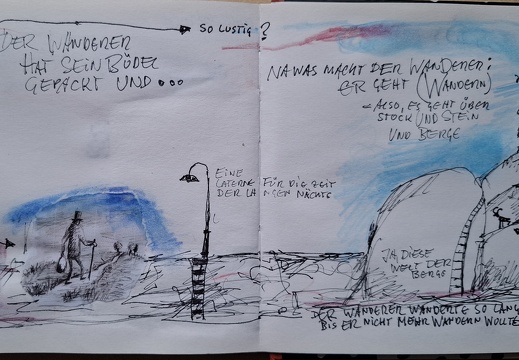 SO LUSTIG?
DER WANDERER
HAT SEIN BÜDEL
GEPACKT UND...
NA WAS MACHT DER WANDERER:
ER GEHT (WANDERN)
- ALSO, ES GEHT ÜBER
STOCK UND STEIN
UND BERGE
EINE
LATERNE FÜR DIE ZEIT
DER LANGEN NÄCHTE
JA, DIESE
WELT DER
BERGE
DER WANDERER WANDERTE SO LANG
BIS ER NICHT MEHR WANDERN WOLLTE